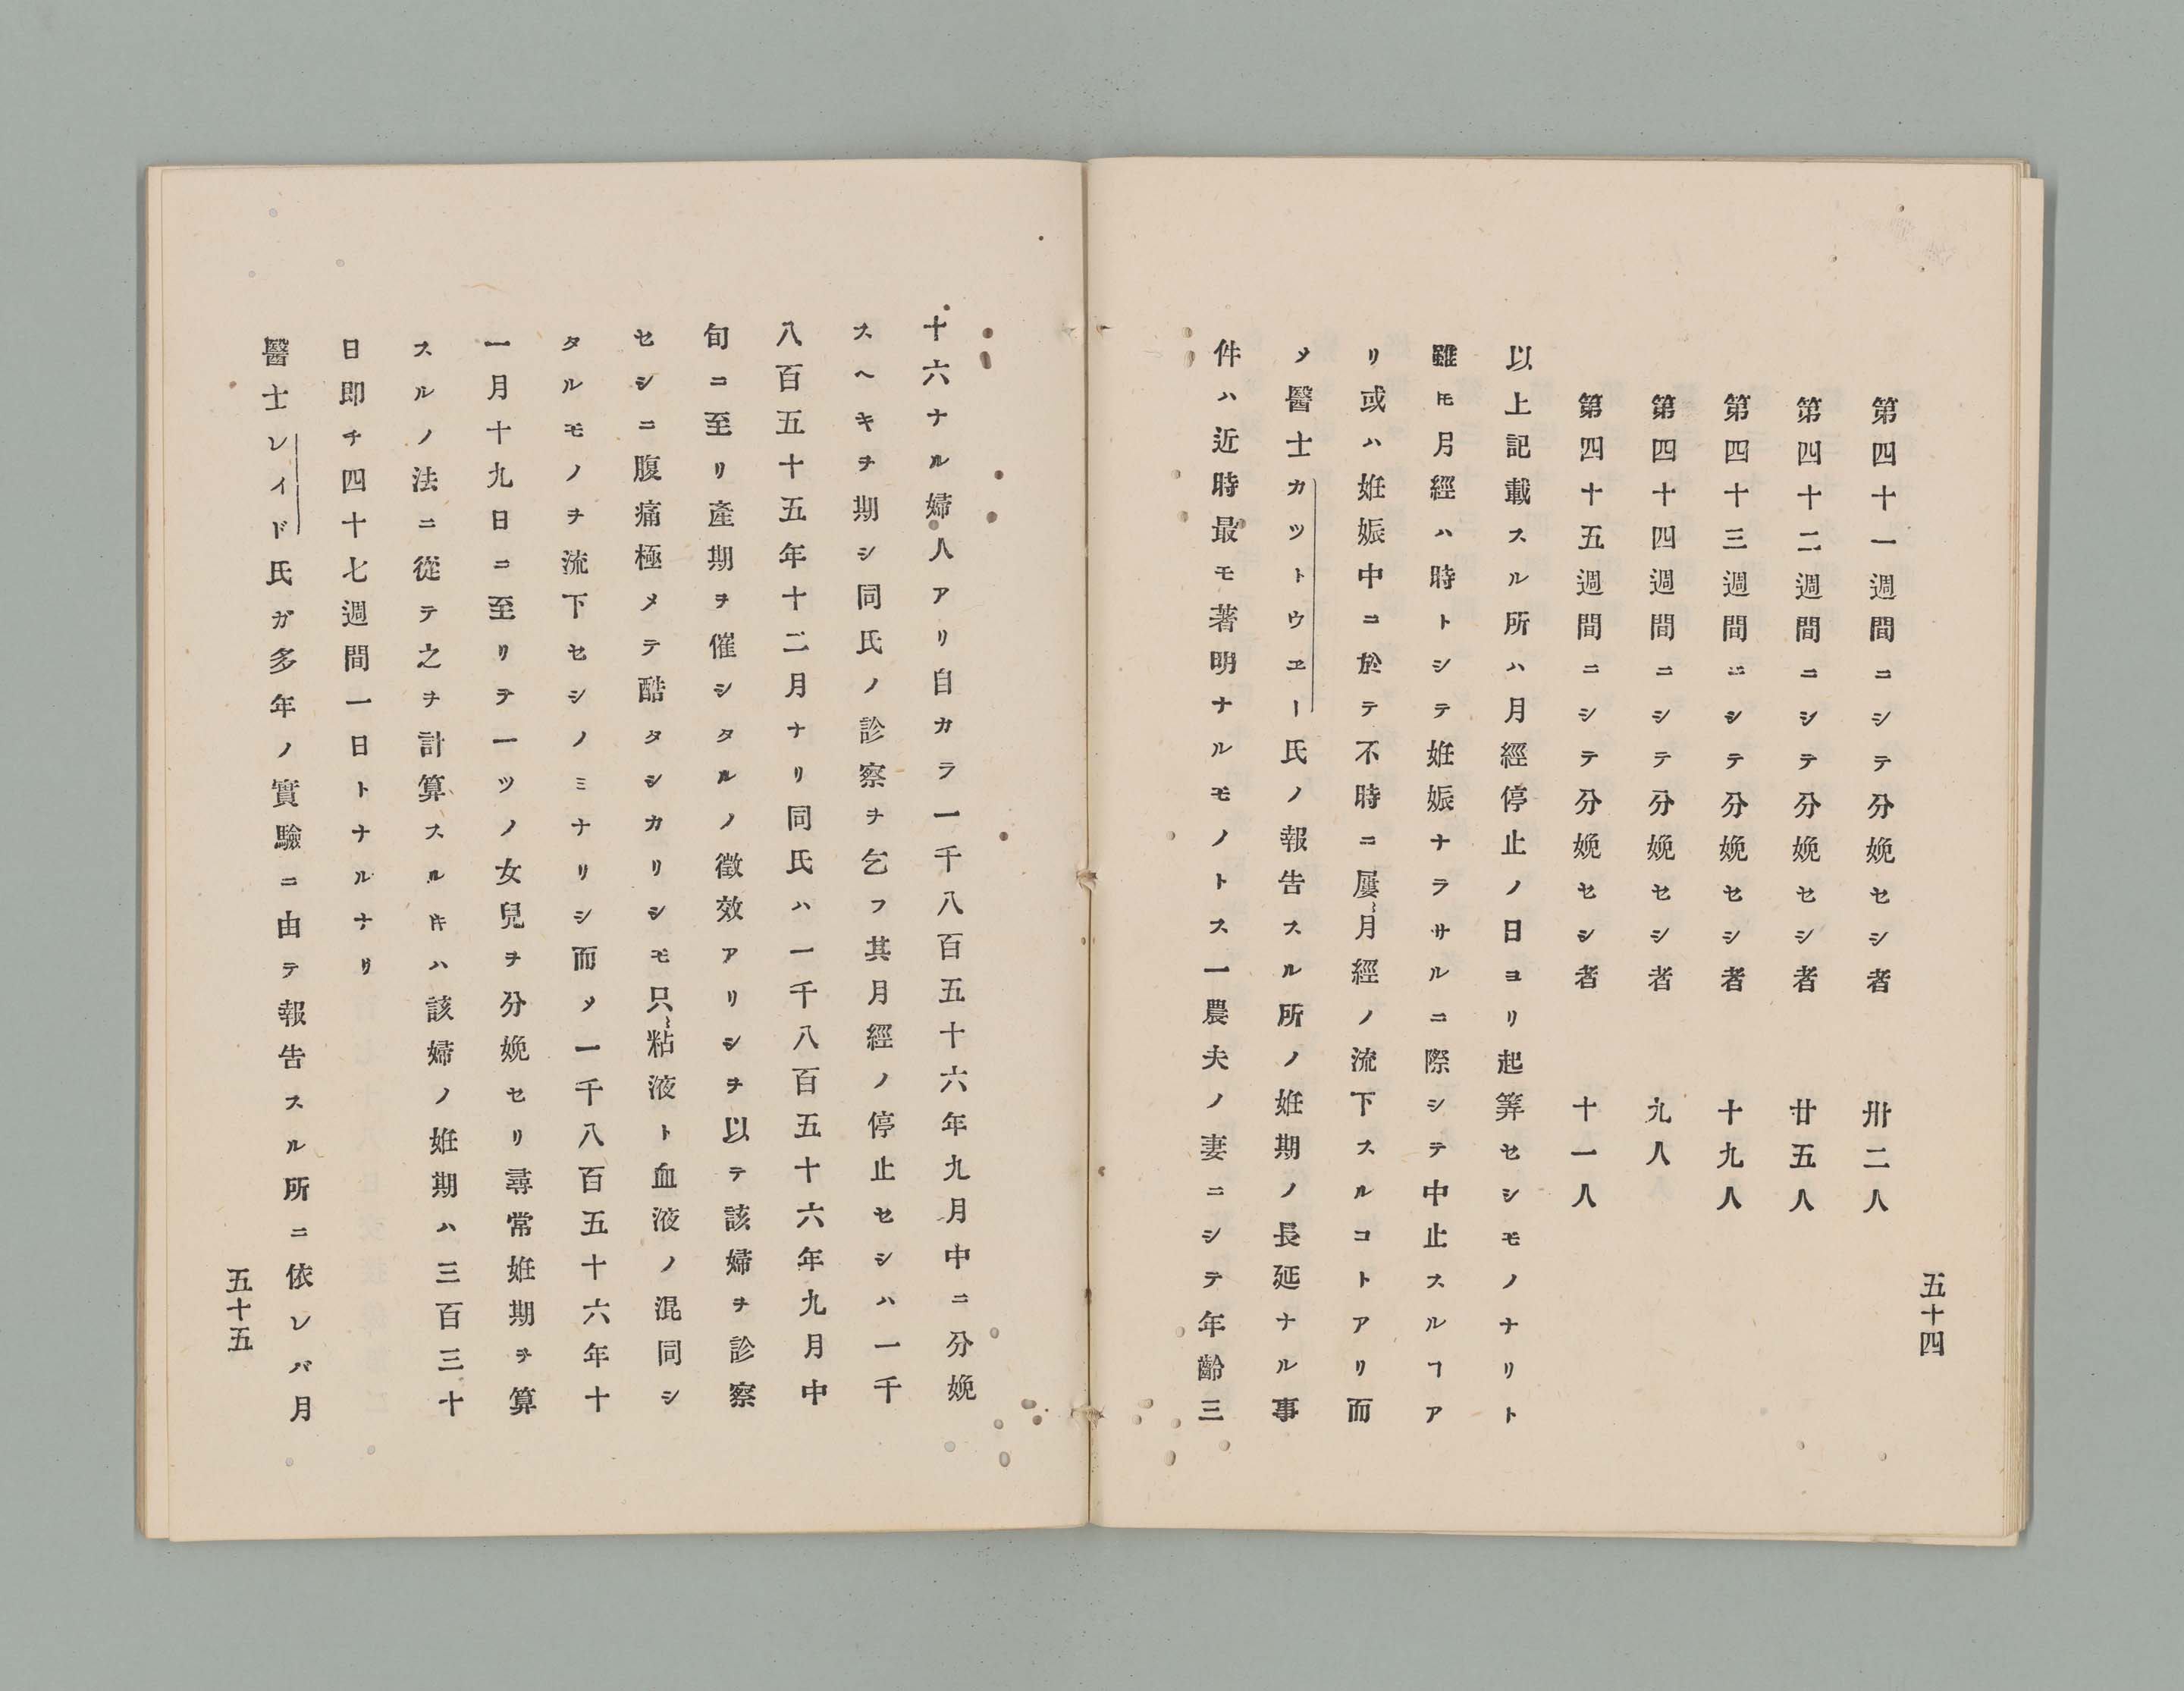 第四十一週間ニシテ分娩セシ者 卅二人
第四十二週間ニシテ分娩セシ者 廿五人
第四十三週間ニシテ分娩セシ者 十九人
第四十四週間ニシテ分娩セシ者 九人
第四十五週間ニシテ分娩セシ者 十一人
以上記載スル所ハ月經停止ノ日ヨリ起筭セシモノナリト
雖𪜈月經ハ時トシテ姙娠ナラサルニ際シテ中止スルヿア
リ或ハ姙娠中ニ於テ不時ニ屢〻月經ノ流下スルコトアリ而
メ醫士カツトウヱー氏ノ報告スル所ノ姙期ノ長延ナル事
件ハ近時最モ著明ナルモノトス一農夫ノ妻ニシテ年齡三
五十四
十六ナル婦人アリ自カラ一千八百五十六年九月中ニ分娩
スヘキヲ期シ同氏ノ診察ヲ乞フ其月經ノ停止セシハ一千
八百五十五年十二月ナリ同氏ハ一千八百五十六年九月中
旬ニ至リ產期ヲ催シタルノ徵效アリシヲ以テ該婦ヲ診察
セシニ腹痛極メテ酷タシカリシモ只〻粘液ト血液ノ混同シ
タルモノヲ流下セシノミナリシ而メ一千八百五十六年十
一月十九日ニ至リヲ一ツノ女兒ヲ分娩セリ尋常姙期ヲ算
スルノ法ニ從テ之ヲ計算スルキハ該婦ノ姙期ハ三百三十
日即チ四十七週間一日トナルナリ
醫士レイド氏ガ多年ノ實驗ニ由テ報告スル所ニ依レバ月
五十五